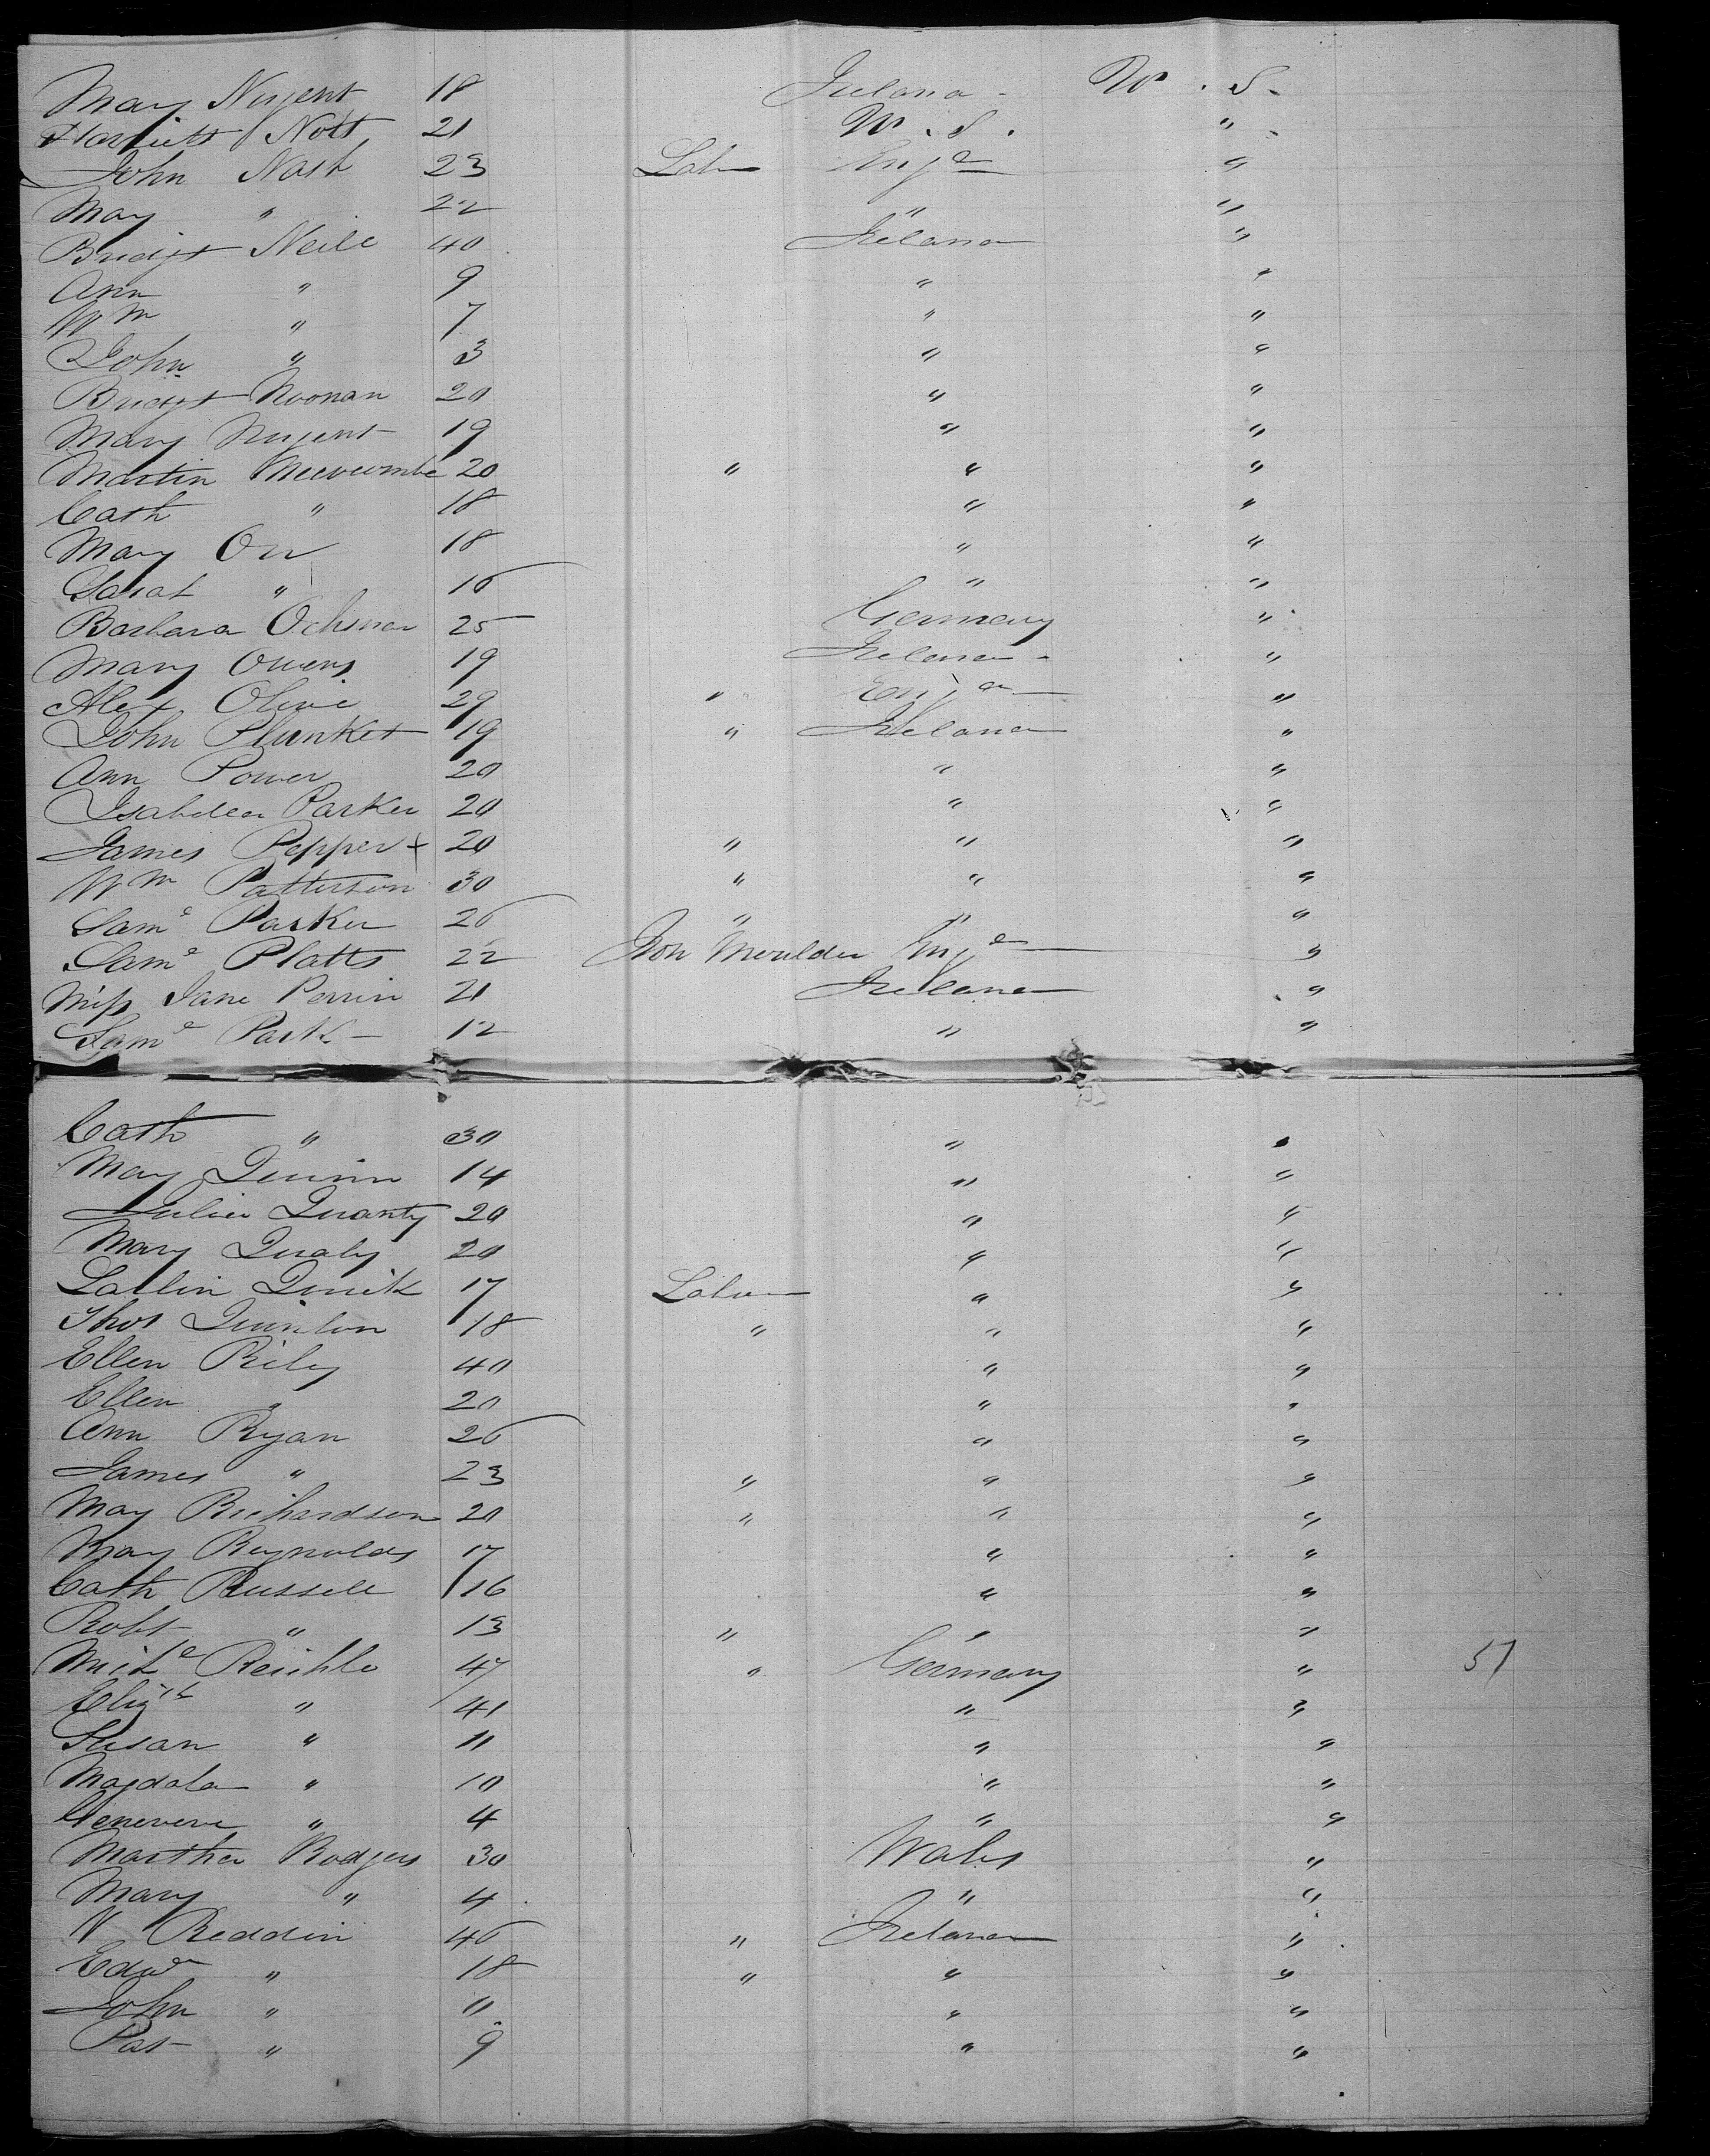 Mary Nugent 18 Ireland U.S.
Harriett Nott 21 U.S. "
John Nash 23 Labr Engd "
Mary " 22 " "
Bridget Neill 40 Ireland "
Ann " 9 " "
Wm " 7 " "
John " 3 " "
Bridget Noonan 20 " "
Mary Nugent 19 " "
Martin 20 " " "
Cath " 18 " "
Mary Orr 18 " "
Sarah " 16 " "
Barbara 25 Germany "
Mary Owens 19 Ireland "
Alex Olive 29 " Engd "
John Plunket 19 " Ireland "
Ann Power 20 " "
Isabella Parker 20 " "
James Pepper + 20 " " "
Wm Patterson 30 " " "
Saml Parker 26 " " "
Saml Platts 22 Iron Moulder Engd "
Miss Jane Perrin 21 Ireland "
Saml Park 12 " "
Cath " 30 " "
Mary Quinn 14 " "
Julia Quanty 20 " "
Mary Qualy 20 " "
Quirk 17 Labr " "
Thos Quinlon 18 " " "
Ellen Rily 40 " "
Ellen " 20 " "
Ann Ryan 26 " "
James " 23 " " "
May Richardson 20 " " "
Mary Reynolds 17 " "
Cath Russell 16 " "
Robt " 13 " " "
Michl Reichle 47 " Germany " 51
Elizth " 41 " "
Susan " 11 " "
Magdala " 10 " "
Geneveve " 4 " "
Martha Rodgers 30 Wales "
Mary " 4 " "
N Reddin 46 " Ireland "
Edwd " 18 " " "
John " 11 " "
Pat " 9 " "